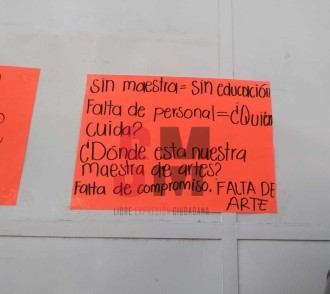 sin maestra = sin educación
Falta de personal = ¿Quién
cuida?
¿Dónde esta nuestra
maestra de artes?
Falta de compromiso. FALTA DE
ARTE
LIBRE EXPRESIÓN CIUDADANA